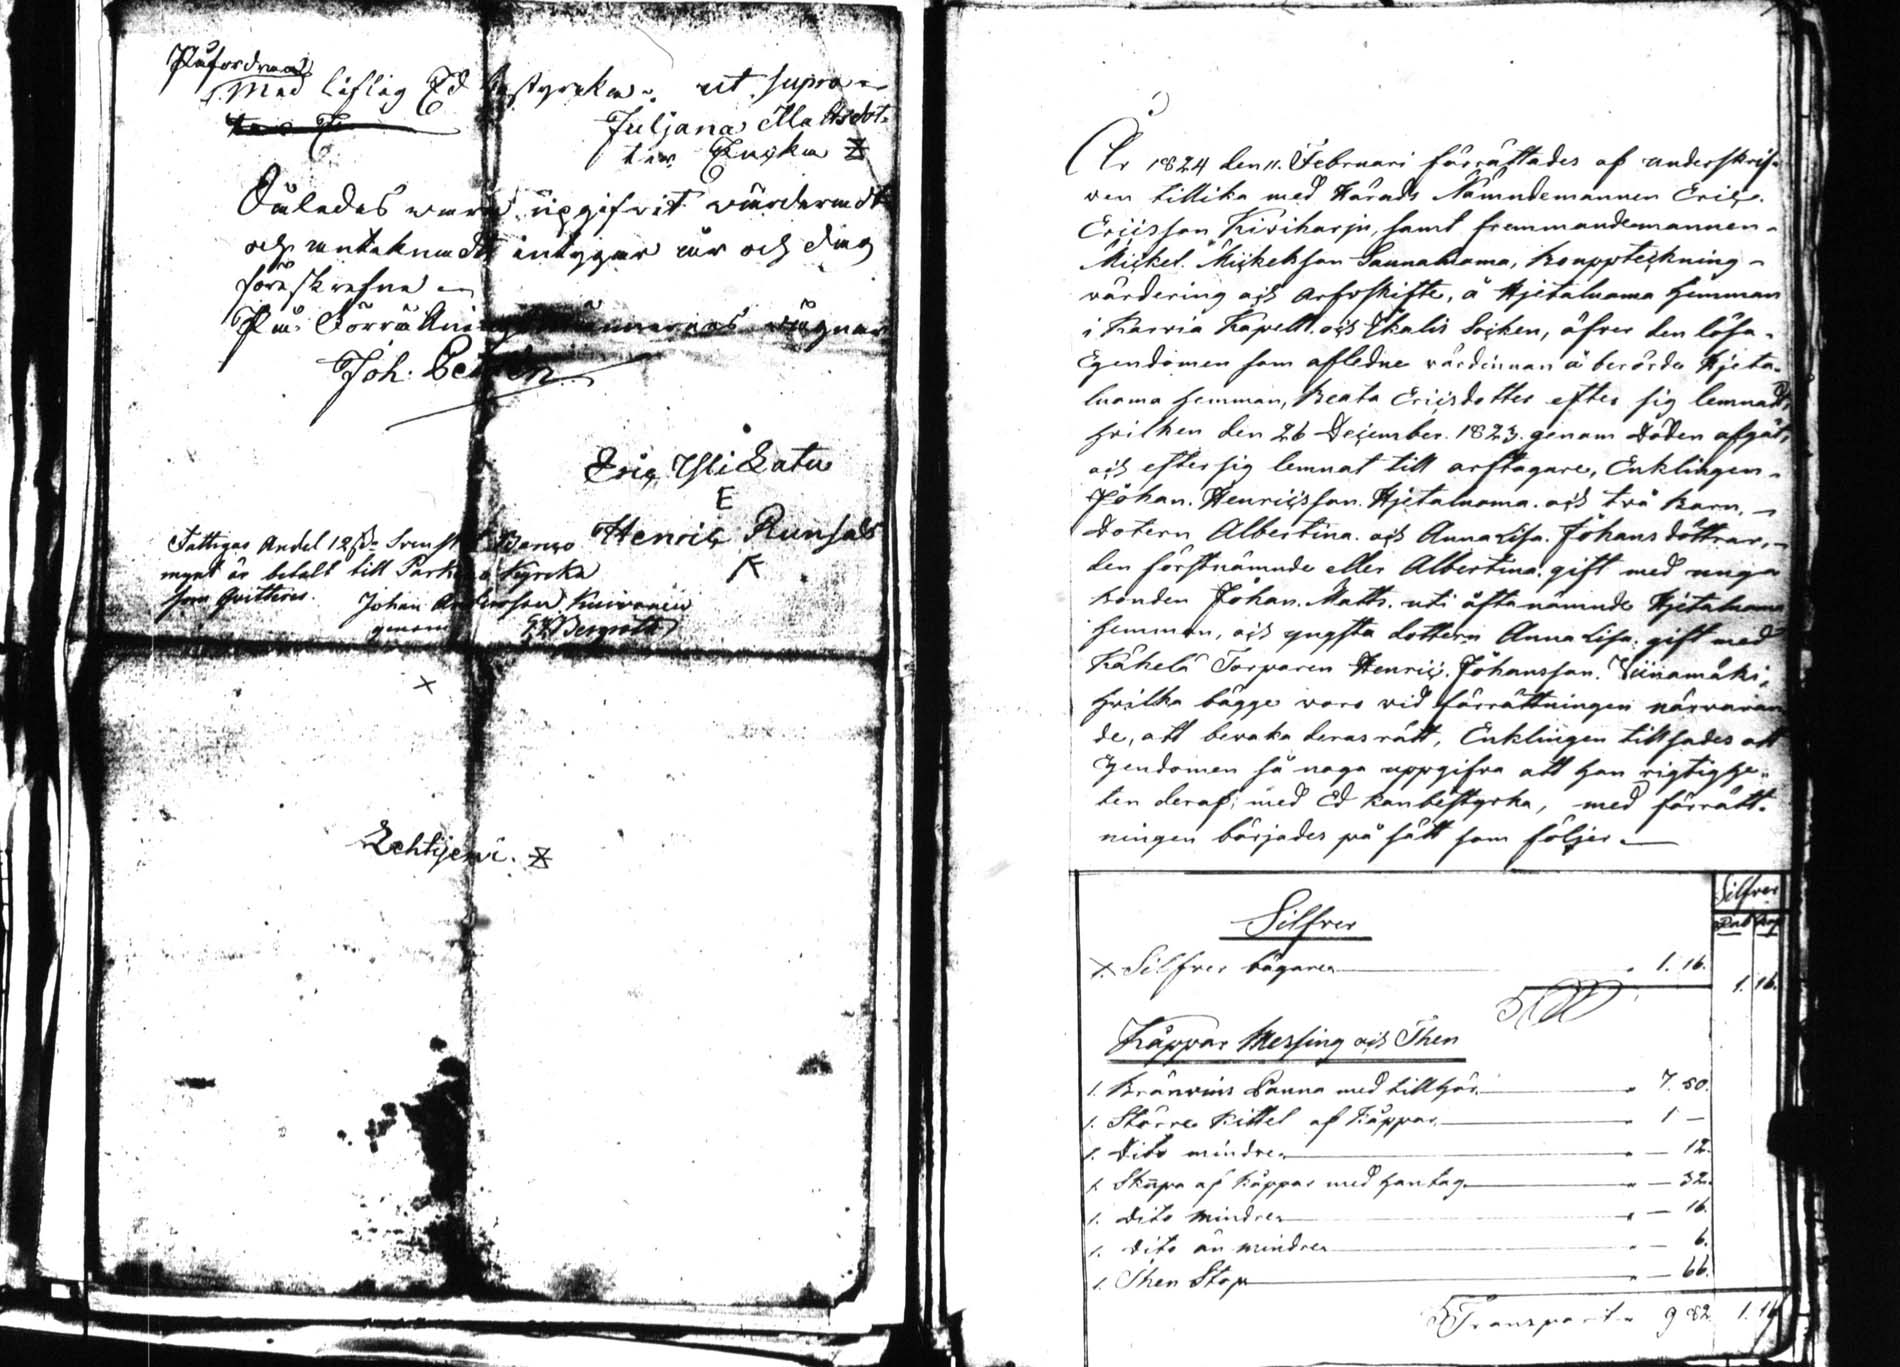 Påfordran
Med liflig Ed bestyrka. ut supra
Juljana Mattsdot-
ter Encka
Således wara upgifvit värderadt
och antaknadt intygar år och dag
föreskrefne
På Förrättningsmännernas wägnar
Joh.
Eric Yli
E
Henric Runsas
Fattigas Andel 12 Svenskt Banco
mynt är betalt till Parkano Kyrcka
som qvitteres. Johan Andersson Kuivanen
genom Bergroth
x
Lehtijervi.
År 1824 den 11. Februari förrättades af underskrif-
ven tillika med Härads Nämndemannen Eric
Ericsson Kiviharju, samt fremmandemannen
Mickel Mickelsson Saunaluama, bouppteckning
värdering och arfvskifte, å Hjetaluama hemman
i Karvia Kapell. och Ikalis Socken, öfver den lösa
Egendomen som afledne värdinnan å berörde Hjeta-
luama hemman, Beata Ericsdotter efter sig lemnadt,
hvilken den 26 December. 1823. genom döden afgått,
och efter sig lemnat till arftagare, Enklingen
Johan. Henricsson. Hjetaluama. och två barn,
dotern Albertina. och Anna Lisa. Johans döttrar,
den förstnämnde eller Albertina. gift med unga
bonden Johan. Matts. uti oftanämnde Hjetaluama
hemman, och yngsta dottern Anna Lisa. gift med
Käkelä Torparen Henric. Johansson. Viinamäki,
hvilka bägge voro vid förrättningen närvaran
de, att bevaka deras rätt, Enklingen tillsades att
Egendomen så noga uppgifva att han rigtighe-
ten deraf, med Ed kan bestyrka, med förrätt-
ningen börjades på sätt som följer
Silfver
Rub Kop
Silfver
1. Silfver bägare 1. 16.
1. 16.
Kåppar Messing och Then
1. Bränvins Panna med tillhör. 7. 50.
1. Större Kittel af Kåppar 1 —
1. Dito mindre — 12.
1. Skåpa af Kåppar med hantag — 32.
1. Dito mindre — 16.
1. Dito än mindre — 6.
1. Then Stop — 66.
Transport 9 82. 1. 16